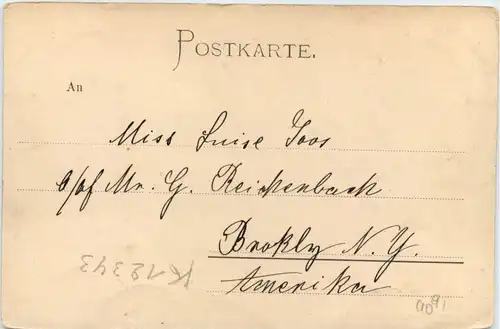 POSTKARTE.
An
Miss Luise Joos
o/of Mr. G. Reickenbach
Brokly N. Y.
Amerika
K12343